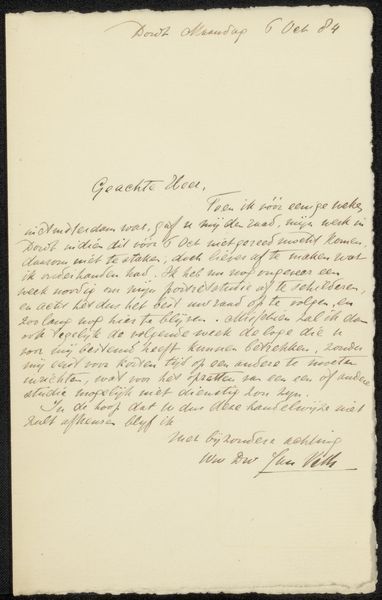 Dordt Maandag 6 Oct 84
Geachte Heer,
Toen ik vóór eenige weken
in Amsterdam was, gaf u mij den raad, mijn werk in
Dordt indien dit vóór 6 Oct niet gereed mocht komen,
daarom niet te staken, doch liever af te maken wat
ik onderhanden had. Ik heb nu nog ongeveer een
week noodig om mijn portretstudie af te schilderen,
en acht het dus het best uw raad op te volgen, en
zoolang nog hier te blijven. Misschien zal ik dan
ook tegelijk de volgende week de loge die u
voor mij bestemd heeft kunnen betrekken, zonder
mij eerst voor korten tijd op een andere te moeten
inrichten, wat voor het opzetten van een of andere
studie mogelijk niet dienstig zou zijn.
In de hoop dat u dus deze handelwijze niet
zult afkeuren blijf ik
met bijzondere achting
Uw Dw Jan Veth